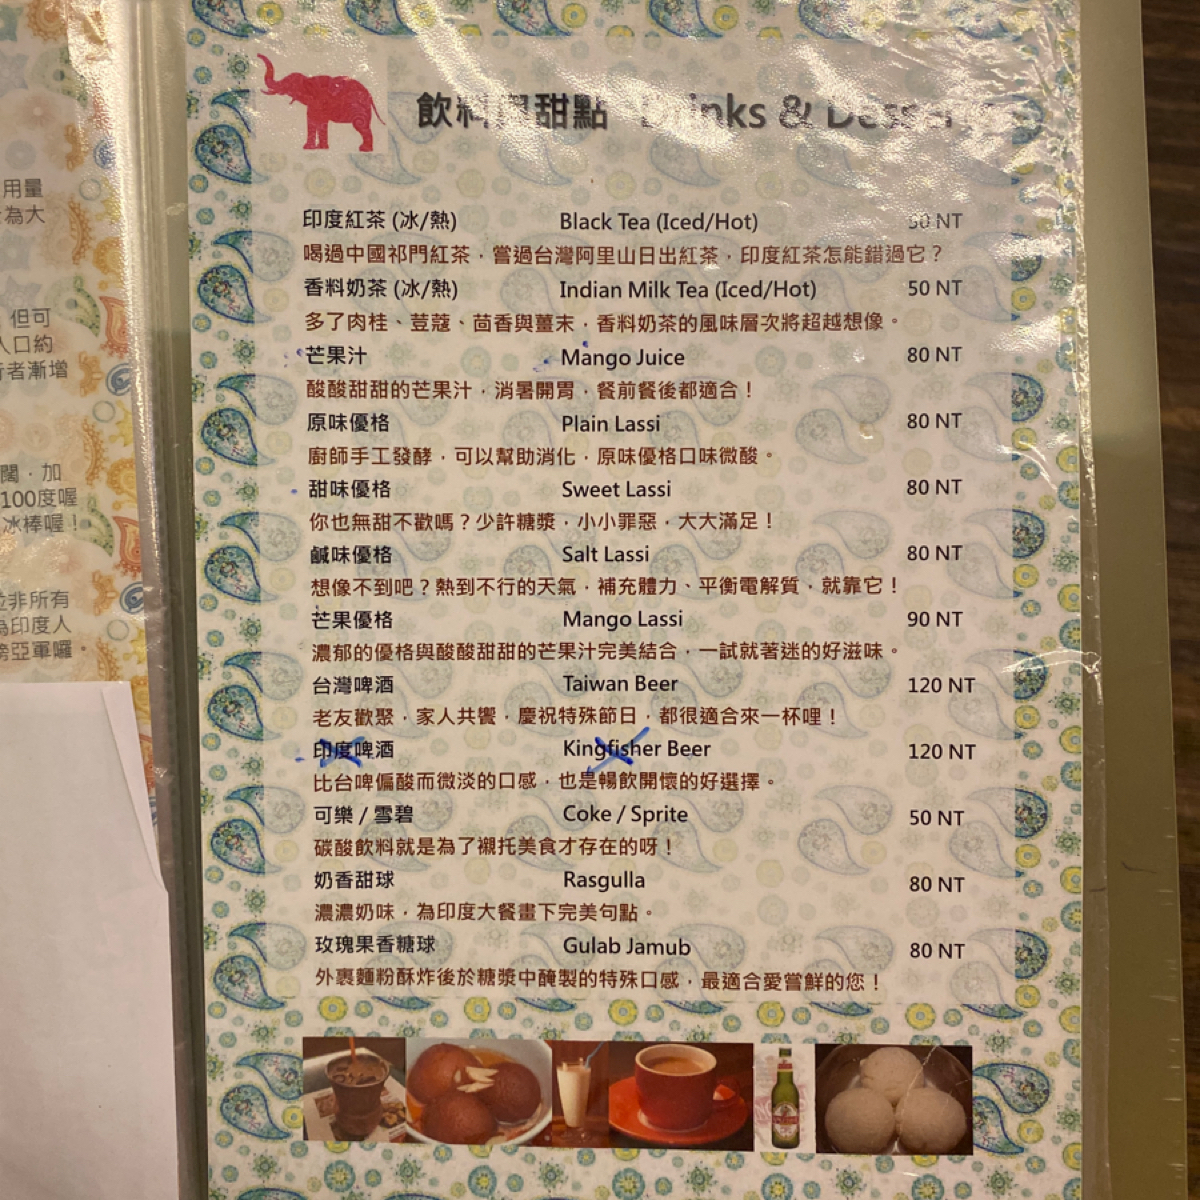 用量
為大
但可
人口約
者漸增
闊．加
100度喔
冰棒喔！
並非所有
為印度人
亞軍囉。
飲料與甜點 Drinks & Desserts
印度紅茶 (冰/熱) Black Tea (Iced/Hot) NT
喝過中國祁門紅茶，嘗過台灣阿里山日出紅茶，印度紅茶怎能錯過它？
香料奶茶 (冰/熱) Indian Milk Tea (Iced/Hot) 50 NT
多了肉桂、荳蔻、茴香與薑末，香料奶茶的風味層次將超越想像。
芒果汁 Mango Juice 80 NT
酸酸甜甜的芒果汁，消暑開胃，餐前餐後都適合！
原味優格 Plain Lassi 80 NT
廚師手工發酵，可以幫助消化，原味優格口味微酸。
甜味優格 Sweet Lassi 80 NT
你也無甜不歡嗎？少許糖漿，小小罪惡，大大滿足！
鹹味優格 Salt Lassi 80 NT
想像不到吧？熱到不行的天氣，補充體力、平衡電解質，就靠它！
芒果優格 Mango Lassi 90 NT
濃郁的優格與酸酸甜甜的芒果汁完美結合，一試就著迷的好滋味。
台灣啤酒 Taiwan Beer 120 NT
老友歡聚，家人共饗，慶祝特殊節日，都很適合來一杯哩！
印度啤酒 Kingfisher Beer 120 NT
比台啤偏酸而微淡的口感，也是暢飲開懷的好選擇。
可樂 / 雪碧 Coke / Sprite 50 NT
碳酸飲料就是為了襯托美食才存在的呀！
奶香甜球 Rasgulla 80 NT
濃濃奶味，為印度大餐畫下完美句點。
玫瑰果香糖球 Gulab Jamub 80 NT
外裹麵粉酥炸後於糖漿中醃製的特殊口感，最適合愛嘗鮮的您！